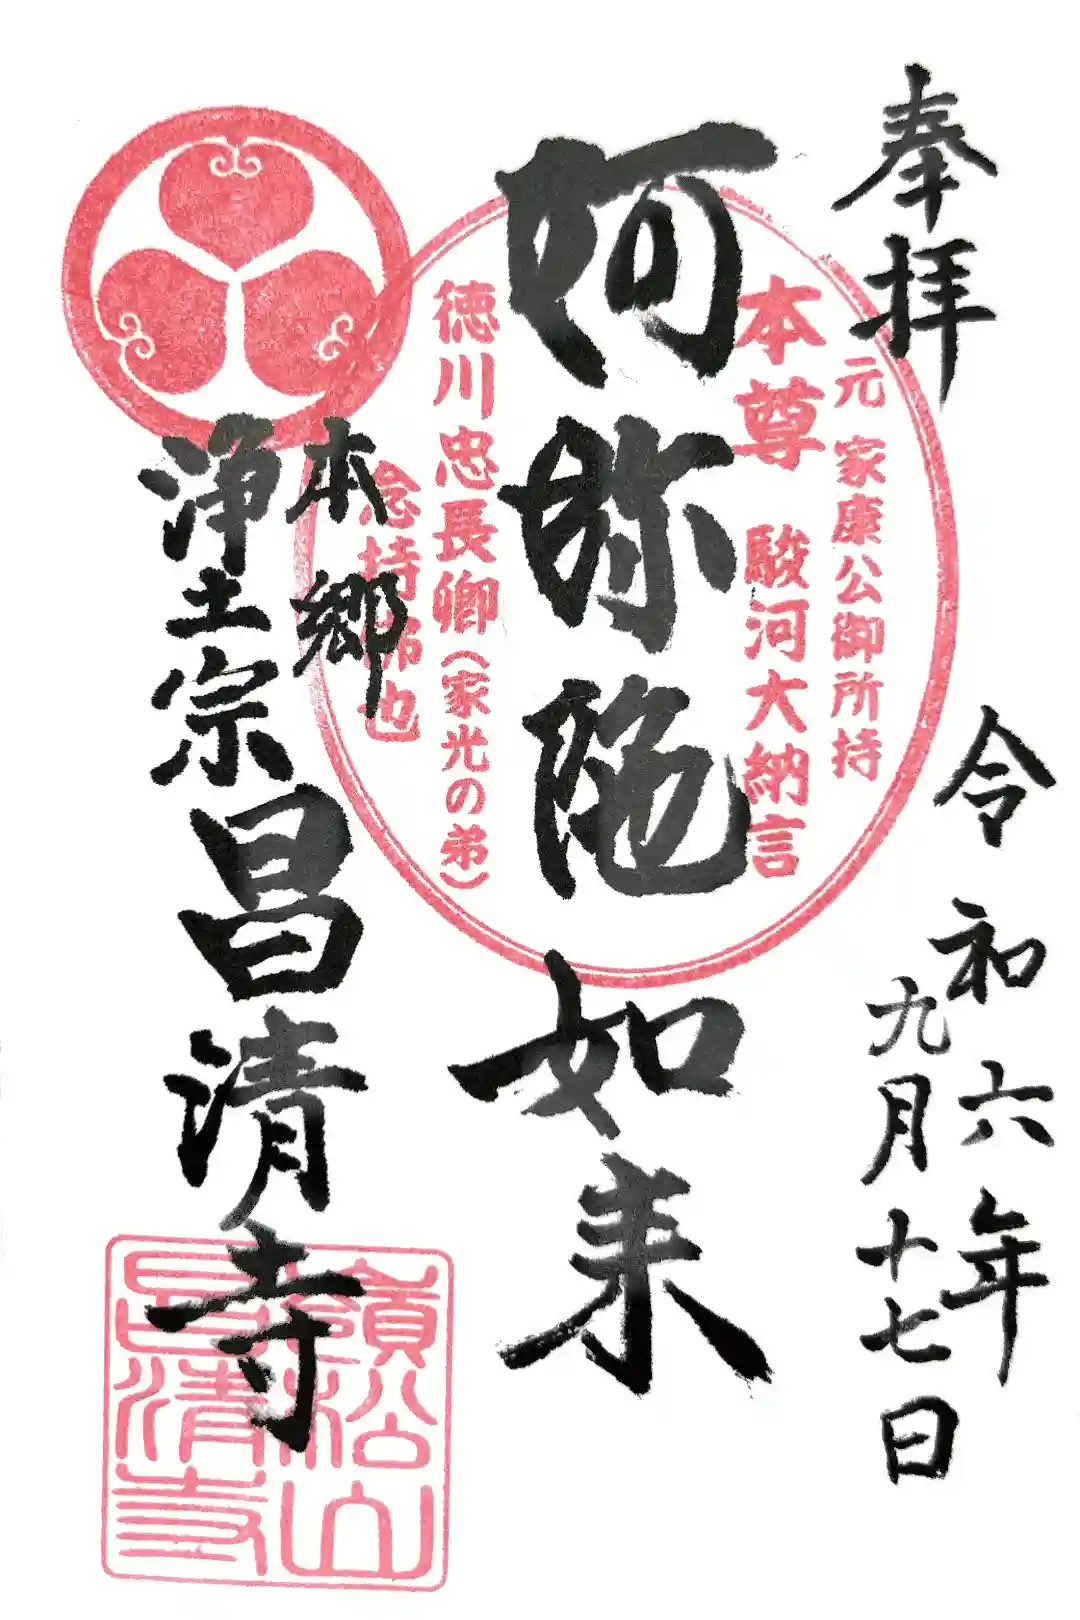 奉拝
令和六年
九月十七日
元 家康公御所持
本尊 駿河大納言
阿弥陀如来
徳川忠長卿(家光の弟)
念持佛也
本郷
浄土宗昌清寺
嶺松山
昌清寺